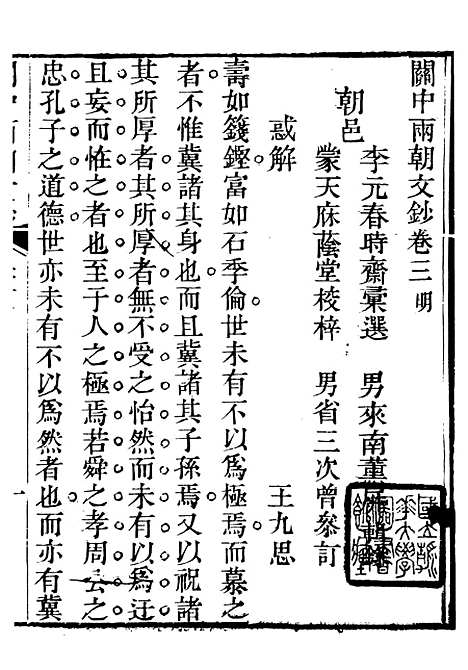 關中兩朝文鈔卷三 明
朝邑
李元春時齋彙選 男來南薰屏
蒙天庥蔭堂校梓 男省三次曾叅訂
惑解 王九思
壽如籛鏗富如石季倫世未有不以爲極焉而慕之
者不惟冀諸其身也而且冀諸其子孫焉又以祝諸
其所厚者其所厚者無不受之怡然而未有以爲迂
且妄而恠之者也至于人之極焉若舜之孝周公之
忠孔子之道德世亦未有不以爲然者也而亦有冀
一